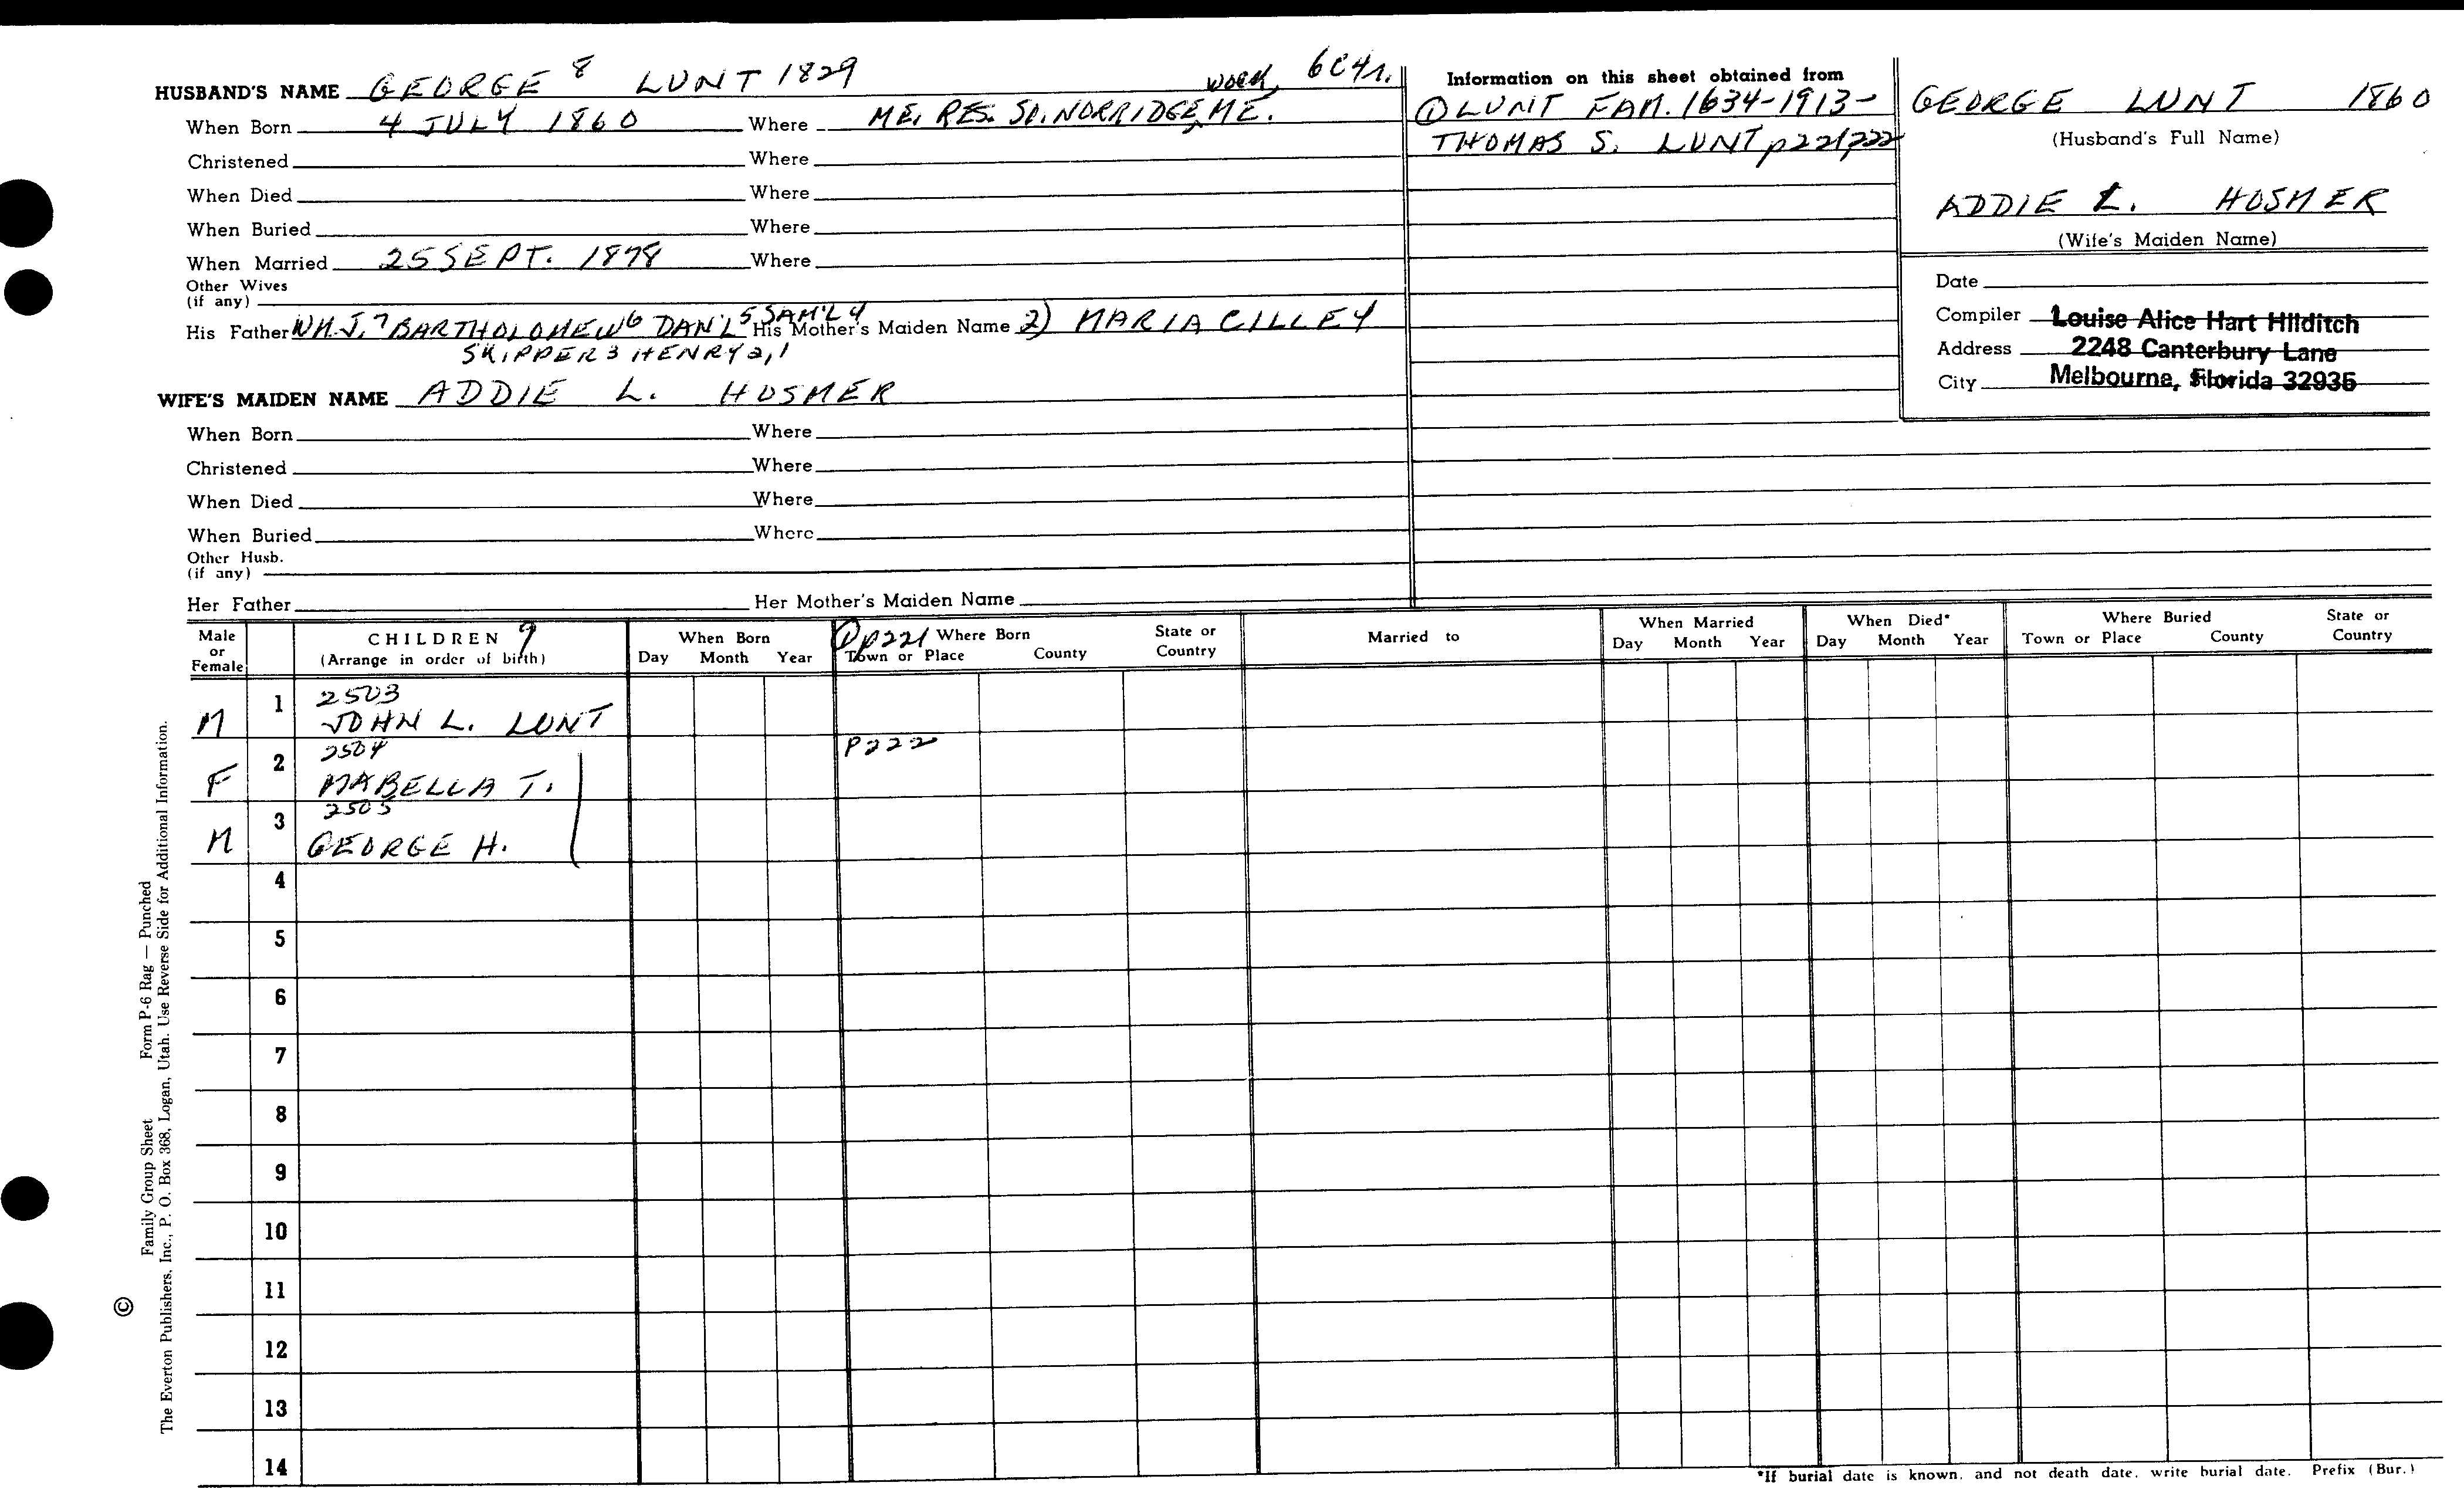 HUSBAND'S NAME GEORGE 8 LUNT 1829 6C4r.
When Born 4 JULY 1860 Where ME. RES. SO. NORRIDGEWOCK, ME.
Christened Where
When Died Where
When Buried Where
When Married 25 SEPT. 1878 Where
Other Wives
(if any)
His Father WM. J. 7 BARTHOLOMEW 6 DAN'L 5 SAM'L 4 His Mother's Maiden Name 2) MARIA CILLEY
SKIPPER 3 HENRY 2,1
WIFE'S MAIDEN NAME ADDIE L. HOSMER
When Born Where
Christened Where
When Died Where
When Buried Where
Other Husb.
(if any)
Her Father Her Mother's Maiden Name
Information on this sheet obtained from
① LUNT FAM. 1634-1913-
THOMAS S. LUNT p221/222
GEORGE LUNT 1860
(Husband's Full Name)
ADDIE L. HOSMER
(Wife's Maiden Name)
Date
Compiler Louise Alice Hart Hilditch
Address 2248 Canterbury Lane
City Melbourne, Florida 32935
Male or Female
CHILDREN 9
(Arrange in order of birth)
When Born
Day Month Year
① p221 Where Born
Town or Place County State or Country
Married to
When Married
Day Month Year
When Died*
Day Month Year
Where Buried
Town or Place County State or Country
M 1 2503
JOHN L. LUNT
F 2 2504 P222
MABELLA T.
M 3 2505
GEORGE H.
4
5
6
7
8
9
10
11
12
13
14
*If burial date is known, and not death date, write burial date. Prefix (Bur.)
©
Family Group Sheet Form P-6 Rag — Punched
The Everton Publishers, Inc., P. O. Box 368, Logan, Utah. Use Reverse Side for Additional Information.